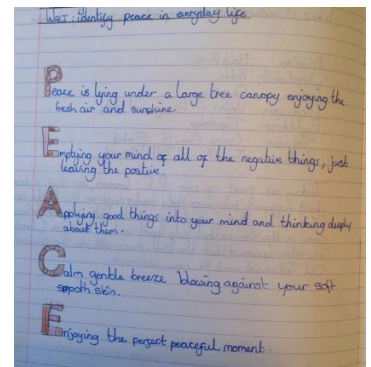 WALT: identify peace in everyday life.
Peace is lying under a large tree canopy enjoying the
fresh air and sunshine.
Emptying your mind of all of the negative things, just
leaving the positive.
Applying good things into your mind and thinking deeply
about them.
Calm gentle breeze blowing against your soft
smooth skin.
Enjoying the perfect peaceful moment.